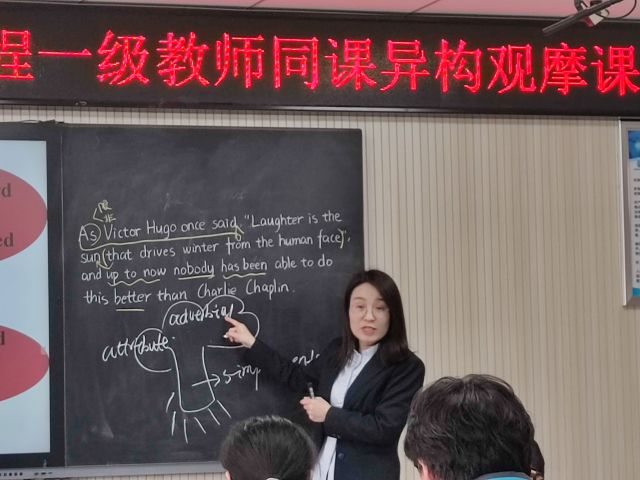 程一级教师同课异构观摩课
限
非
As Victor Hugo once said, "Laughter is the
sun (that drives winter from the human face)",
and up to now nobody has been able to do
this better than Charlie Chaplin.
adverbial
attribute
simp